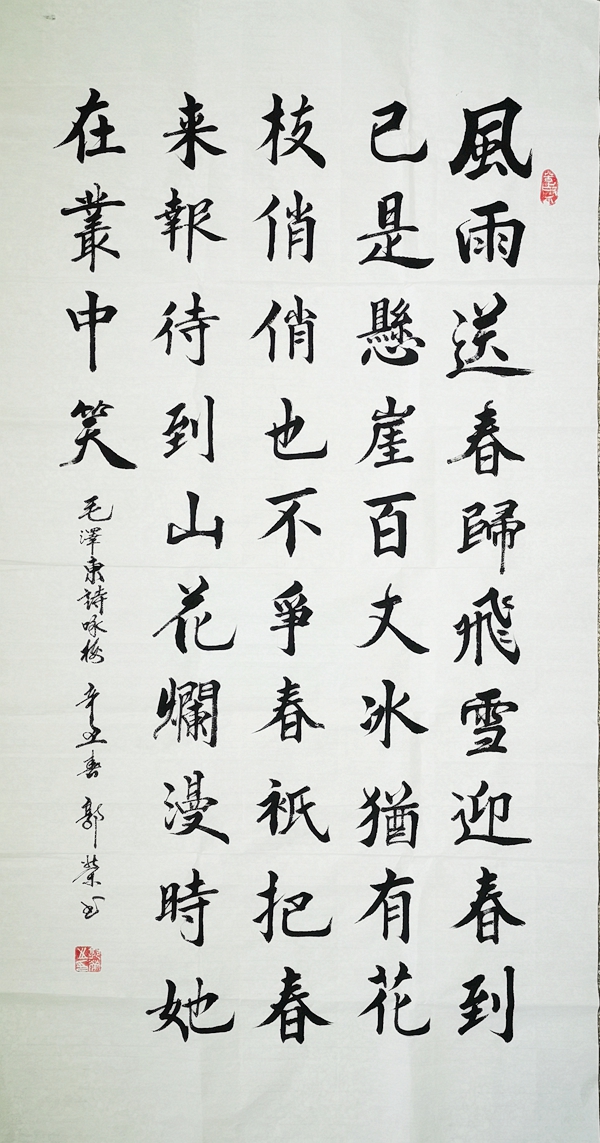 風雨送春歸飛雪迎春到
已是懸崖百丈冰猶有花
枝俏俏也不爭春衹把春
来報待到山花爛漫時她
在叢中笑
毛澤東詩咏梅 辛丑春 郭榮书